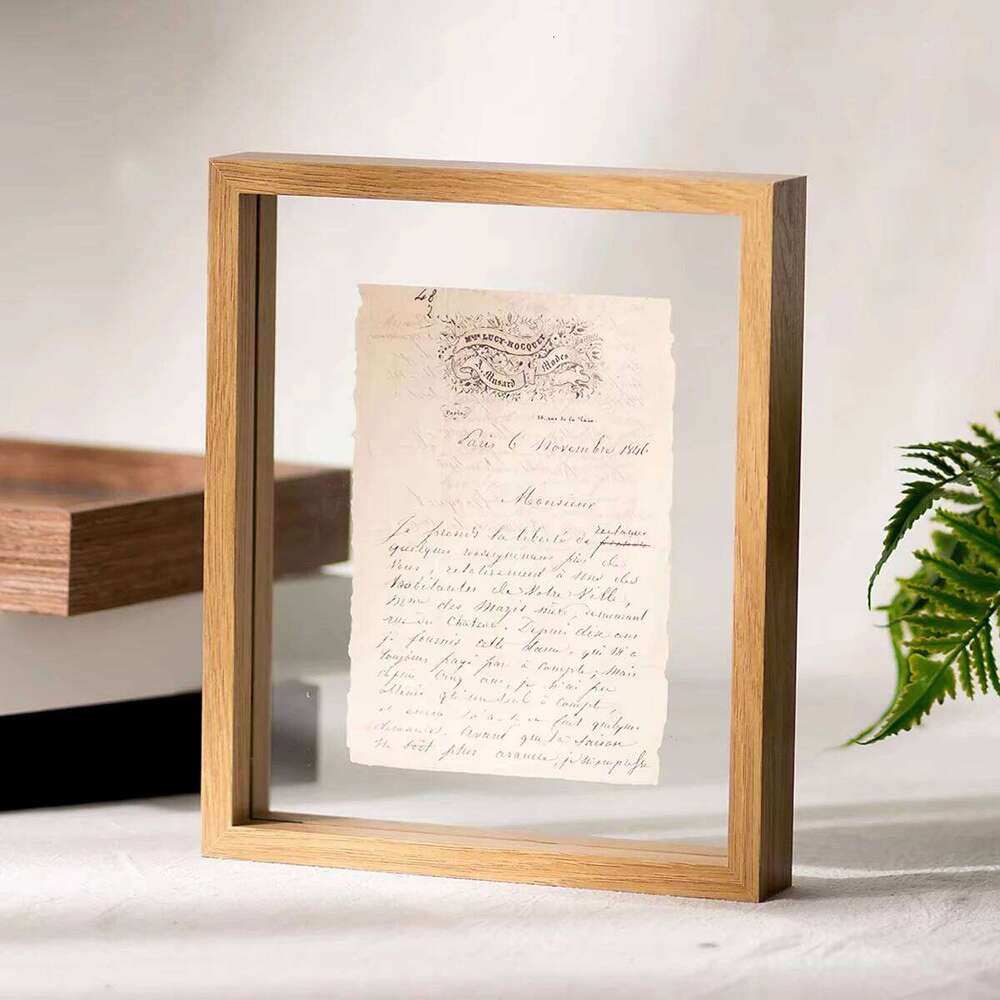 48
2.
Mme LUCY-HOCQUET
A. Musard Modes
Paris
rue de la Paix
Paris 6 Novembre 1846
Monsieur
Je prends la liberté de
quelques renseignemens près de
Vous, relativement à
habitantes de Votre Ville,
des demeurant
rue du Château. Depuis dix ans
je fournis cette dame, qui m'a
toujours payé par à compte, mais
depuis cinq ans, je n'ai pu
obtenir qu'un seul à compte,
et fait quelques
demandes. Avant que la Saison
ne soit plus avancée, je